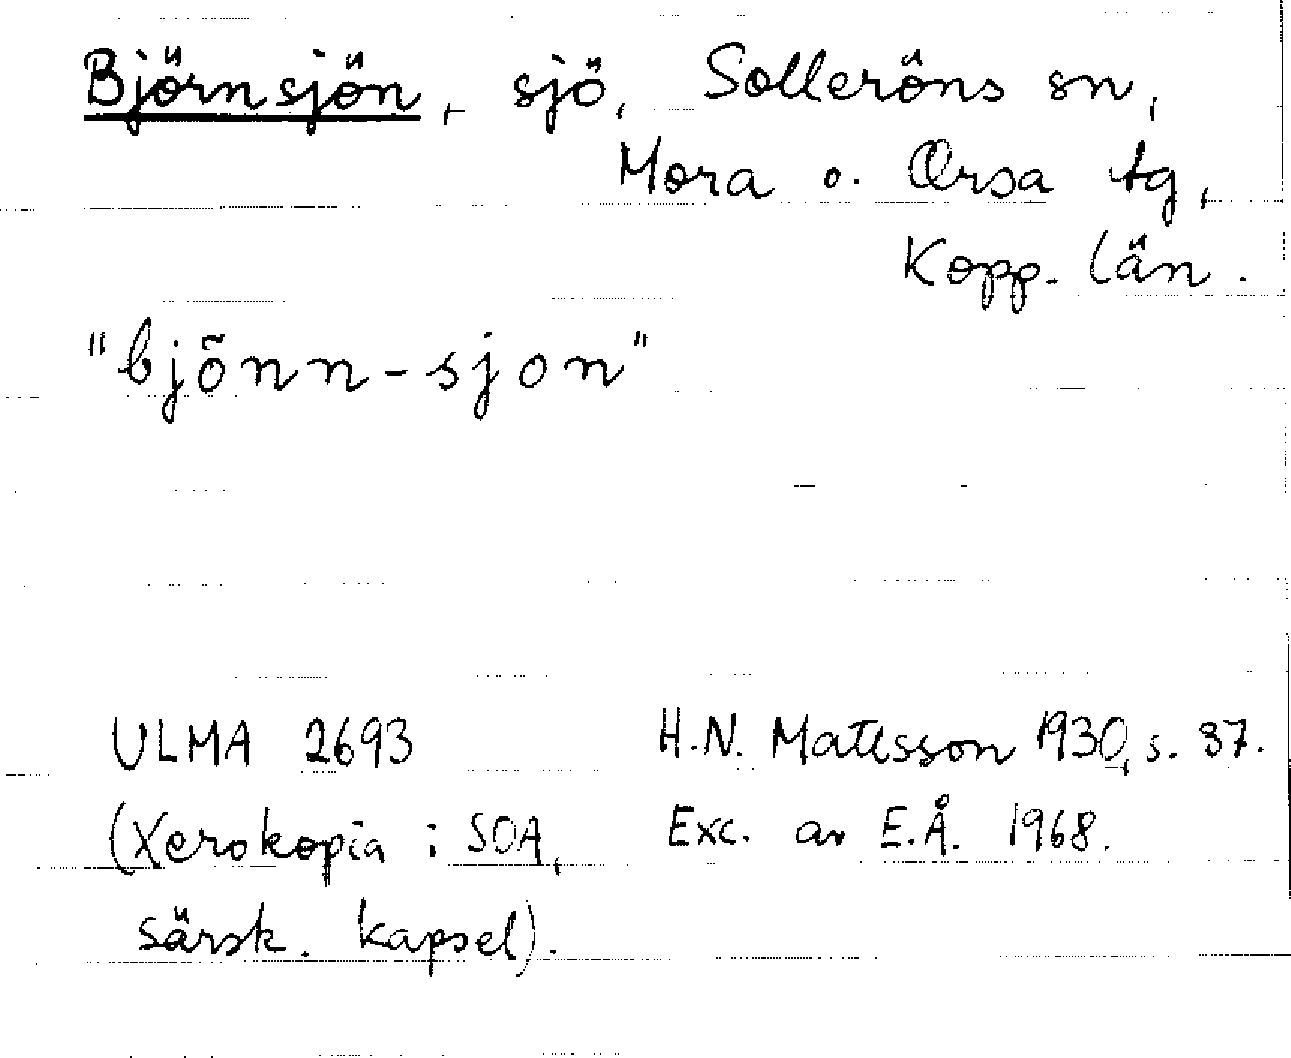 Björnsjön, sjö, Solleröns sn,
Mora o. Orsa tg,
Kopp. län.
"bjõnn-sjon"
ULMA 2693 H.N. Matsson 1930, s. 37.
(Xerokopia i SOA, Exc. av E.Å. 1968.
särsk. kapsel).